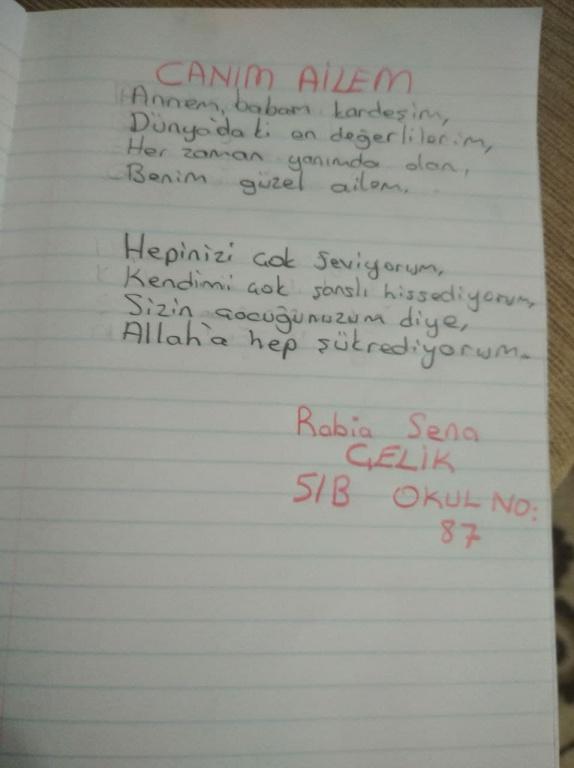 CANIM AİLEM
Annem, babam kardeşim,
Dünya'daki en değerlilerim,
Her zaman yanımda olan,
Benim güzel ailem.
Hepinizi çok seviyorum,
Kendimi çok şanslı hissediyorum,
Sizin çocuğunuzum diye,
Allah'a hep şükrediyorum.
Rabia Sena
ÇELİK
5/B OKUL NO:
87